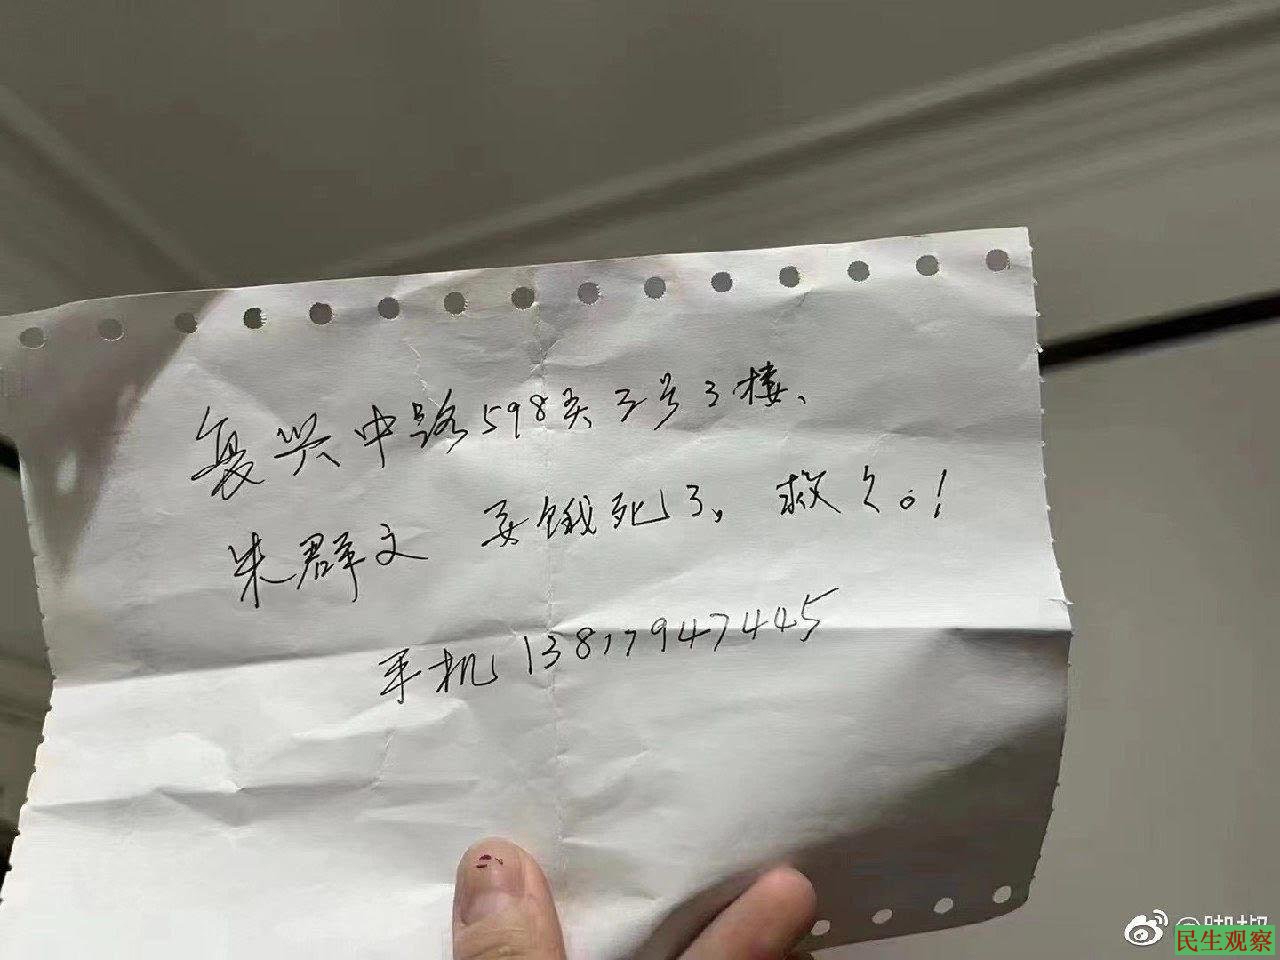 复兴中路598弄3号3楼、
朱群文 要饿死了。救久。！
手机13817947445
民生观察